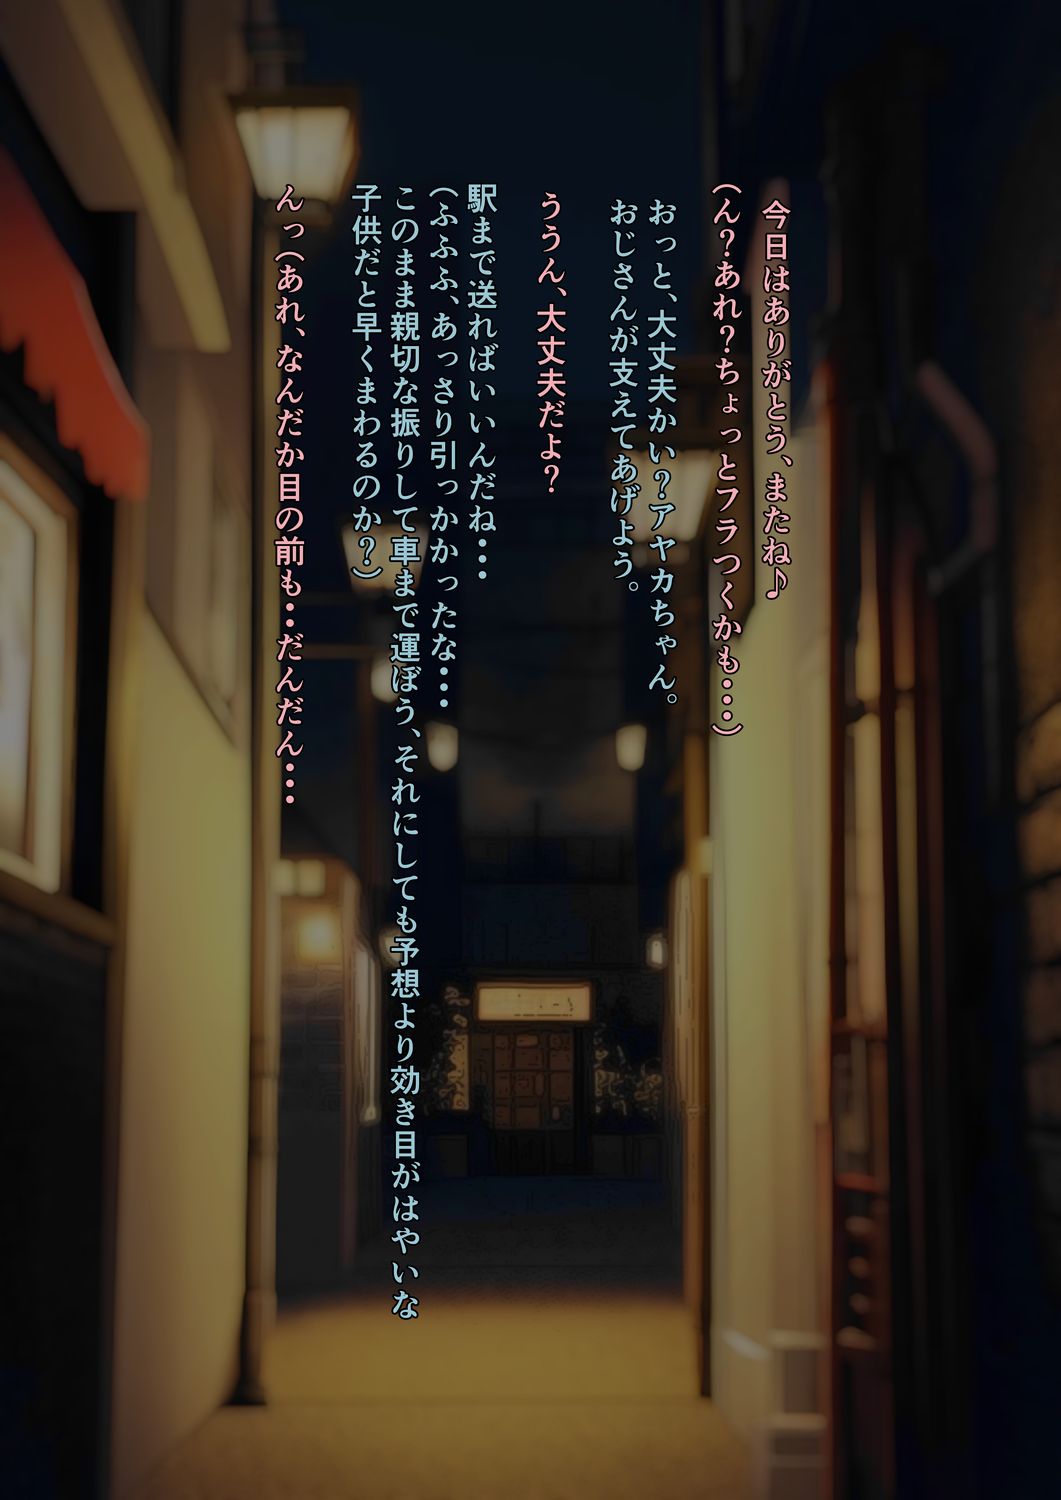 今日はありがとう、またね♪
(ん?あれ?ちょっとフラつくかも・・・)
おっと、大丈夫かい?アヤカちゃん。
おじさんが支えてあげよう。
ううん、大丈夫だよ?
駅まで送ればいいんだね・・・
(ふふふ、あっさり引っかかったな・・・
このまま親切な振りして車まで運ぼう、それにしても予想より効き目がはやいな
子供だと早くまわるのか?)
んっ(あれ、なんだか目の前も・・だんだん・・・